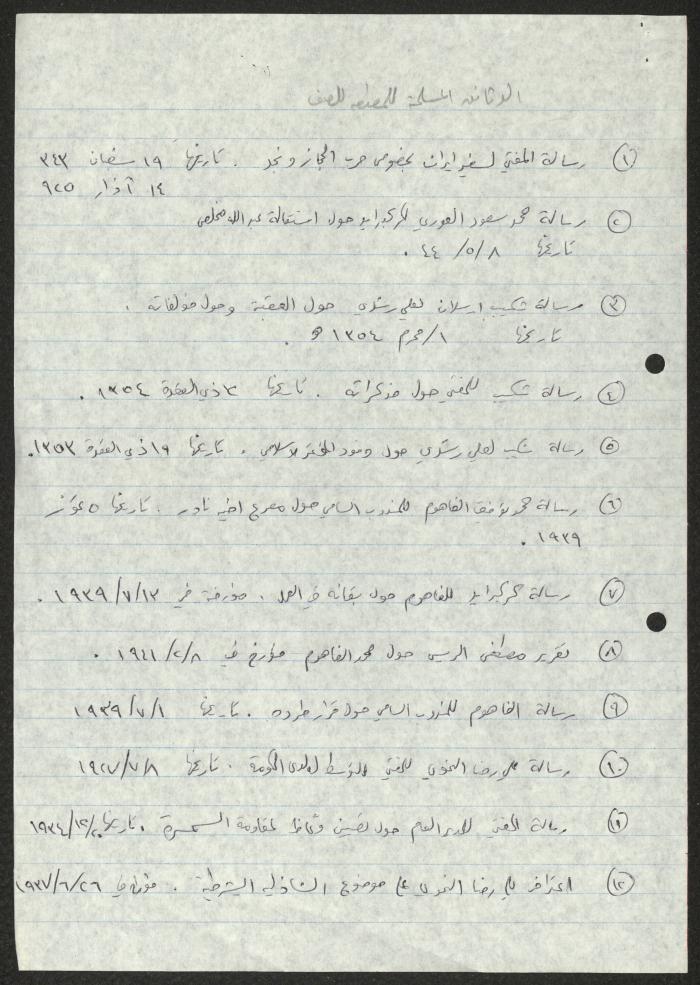 الوثائق المسلمة
① رسالة المفتي لسفير ايران بخصوص حرب الحجاز ونجد . تاريخها ١٩ شعبان ٣٤٣
١٤ آذار ٩٢٥
② رسالة محمد سعود العوري حول استقالة عبد الله مخلص
تاريخها ٨ /٥/ ٤٤ .
③ رسالة شكيب ارسلان لعلي رشدي حول العقبة وحول مؤلفاته .
تاريخها ١/محرم ١٣٥٤ هـ .
④ رسالة شكيب للمفتي حول مذكراته . تاريخها ذي القعدة ١٣٥٤ .
⑤ رسالة شكيب لعلي رشدي حول وفود المؤتمر الاسلامي . تاريخها ١٩ ذي القعدة ١٣٥٣.
⑥ رسالة محمد توفيق الفاهوم للمندوب السامي حول اخيه نادر . تاريخها ٥ تموز
١٩٣٩ .
⑦ رسالة للفاهوم حول بقائه في العمل . مؤرخة في ١٩٣٩/٧/١٣ .
⑧ تقرير مصطفى حول محمد الفاهوم مؤرخ في ١٩٤١/٢/٨ .
⑨ رسالة الفاهوم للمندوب السامي حول قرار طرده . تاريخها ١٩٣٩/٧/١
⑩ رسالة علي رضا النحوي للمفتي للتوسط لدى الحكومة . تاريخها ١٩٢٧/٧/٨
⑪ رسالة المفتي للمدير العام حول تعيين وعاظ لمقاومة السمسرة . تاريخها
⑫ اعتراف علي رضا النحوي على موضوع الشاذلية اليشرطية . مؤرخ في ١٩٣٧/٦/٢٦